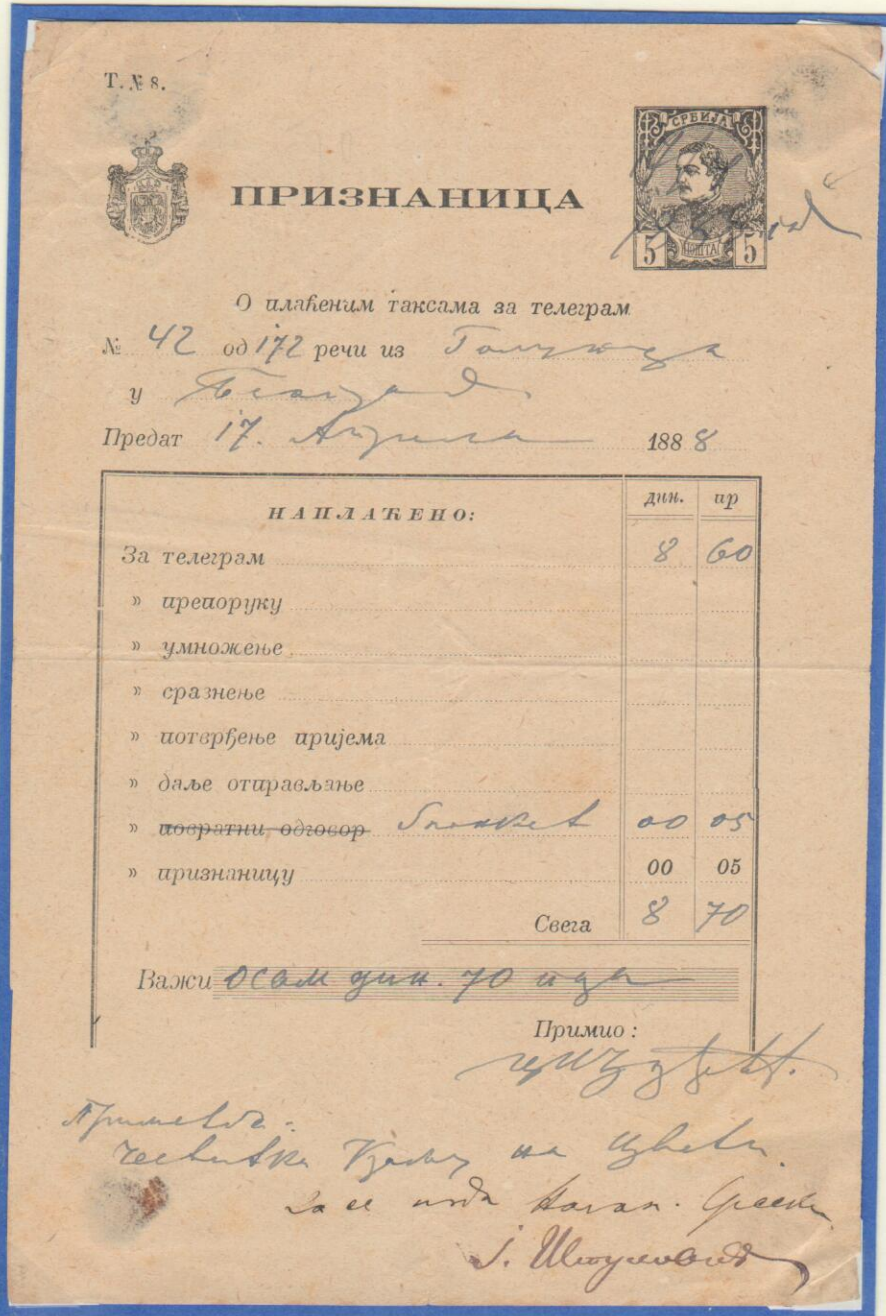 Т. № 8.
СРБИЈА
ПРИЗНАНИЦА
5 ПОШТА 5
О плаћеним таксама за телеграм
№ 42 од 172 речи из Голупца
у Београд
Предат 17. Априла 1888
НАПЛАЋЕНО: дин. пр
За телеграм 8 60
» препоруку
» умножење
» сразнење
» потврђење пријема
» даље отправљање
» повратни одговор бланкет 00 05
» признаницу 00 05
Свега 8 70
Важи осам дин. 70 пра
Примио:
Примедба.
Честитка Краљу на Цвети.
да се изда